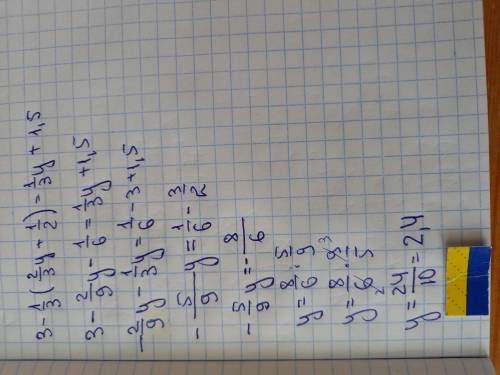 3 - 1/3 (2/3 y + 1/2) = 1/3 y + 1,5
3 - 2/9 y - 1/6 = 1/3 y + 1,5
-2/9 y - 1/3 y = 1/6 - 3 + 1,5
-5/9 y = 1/6 - 3/2
-5/9 y = -8/6
y = 8/6 : 5/9
y = 8/6 2 · 9 3/5
y = 24/10 = 2,4